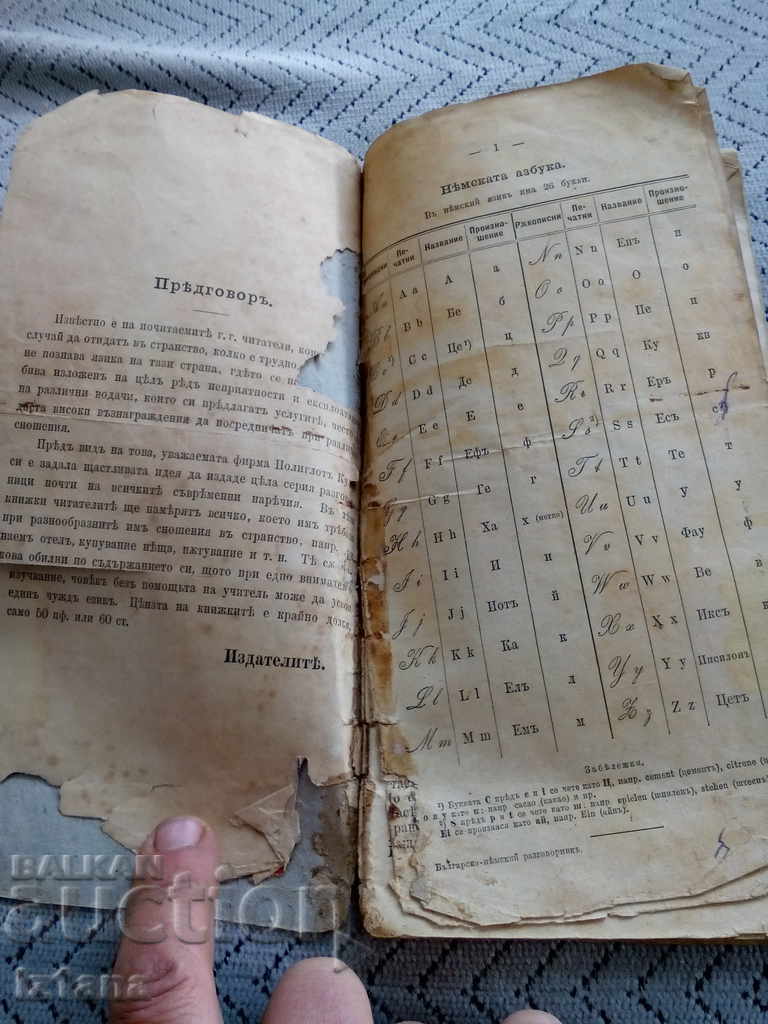 Прѣдговоръ.
Извѣстно е на почитаемитѣ г. г. читатели, кои
случай да отидатъ въ странство, колко е трудно,
не познава язика на тази страна, гдѣто се на
бива изложенъ на цѣлъ рѣдъ неприятности и експлоата
на различни водачи, които си прѣдлагатъ услугитѣ, чест
високи възнаграждения да посредничатъ при различ
сношения.
Прѣдъ видъ на това, уважаемата фирма Полиглотъ Ку
си е задала щастливата идея да издаде цѣла серия разго
ници почти на всичкитѣ съврѣменни наречия. Въ
книжки читателитѣ ще намѣрятъ всичко, което имъ трѣб
при разнообразнитѣ имъ сношения въ странство, напр.
ваемъ отел, купувание нѣща, пѫтувание и т. н. Тѣ сѫ
кова обилни по съдържанието си, щото при едно внимател
изучвание, човѣкъ безъ помощьта на учитель може да усвои
единъ чуждъ езикъ. Цѣната на книжкитѣ е крайно долня,
само 50 пф. или 60 ст.
Издателитѣ.
— 1 —
Нѣмската азбука.
Въ нѣмский язикъ има 26 букви.
Пе-чатни Название Произно-шение Рѫкописни Пе-чатни Название Произно-шение
A a А а N n N n Енъ н
B b B b Бе б O o O o О о
C c Це¹) ц P p P p Пе п
D d D d Де д Q q Q q Ку кв
E e E e Е е R r R r Еръ р
F f F f Ефъ ф S s²) S s Есъ с
G g G g Ге г T t T t Те т
H h H h Ха х (меко) U u U u У у
I i I i И и V v V v Фау ф
J j J j Йотъ й W w W w Ве в
K k K k Ка к X x X x Иксъ к
L l L l Елъ л Y y Y y Ипсилон
M m M m Емъ м Z z Z z Цетъ
Забѣлежка.
¹) Буквата C прѣдъ e и i се чете като Ц, напр. cement (цементъ), citrone (ц
o u y като к: напр. cacao (какао) и пр.
²) S прѣдъ p и t се чете като ш: напр. spielen (шпиленъ), stehen (штеен
Ei се произнася като ай, напр. Ein (айнъ).
Българско-нѣмской разговорникъ.
BALKAN
auction
iztana